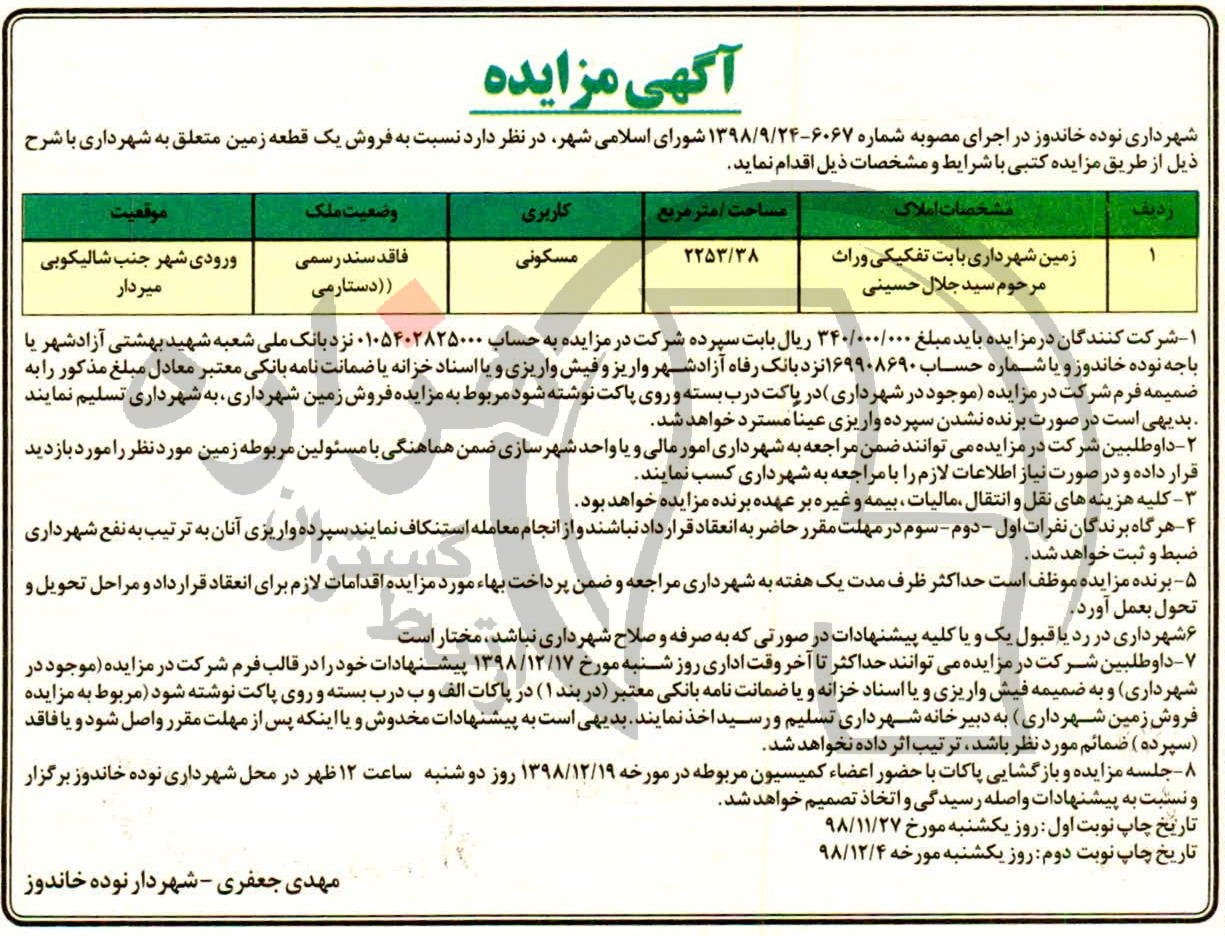 آگهی مزایده
شهرداری نوده خاندوز در اجرای مصوبه شماره ۶۰۶۷-۱۳۹۸/۹/۲۴ شورای اسلامی شهر، در نظر دارد نسبت به فروش یک قطعه زمین متعلق به شهرداری با شرح
ذیل از طریق مزایده کتبی با شرایط و مشخصات ذیل اقدام نماید.
ردیف مشخصات املاک مساحت/متر مربع کاربری وضعیت ملک موقعیت
۱ زمین شهرداری بابت تفکیکی وراث ۲۲۵۳/۳۸ مسکونی فاقد سند رسمی ورودی شهر جنب شالیکوبی
مرحوم سید جلال حسینی ((دستارمی میردار
۱-شرکت کنندگان در مزایده باید مبلغ ۳۴۰/۰۰۰/۰۰۰ ریال بابت سپرده شرکت در مزایده به حساب ۰۱۰۵۴۰۲۸۲۵۰۰۰ نزد بانک ملی شعبه شهید بهشتی آزادشهر یا
باجه نوده خاندوز و یا شماره حساب ۱۶۹۹۰۸۶۹۰نزد بانک رفاه آزادشهر واریز و فیش واریزی و یا اسناد خزانه یا ضمانت نامه بانکی معتبر معادل مبلغ مذکور را به
ضمیمه فرم شرکت در مزایده (موجود در شهرداری )در پاکت درب بسته و روی پاکت نوشته شود مربوط به مزایده فروش زمین شهرداری ، به شهرداری تسلیم نمایند
.بدیهی است در صورت برنده نشدن سپرده واریزی عیناً مسترد خواهد شد.
۲-داوطلبین شرکت در مزایده می توانند ضمن مراجعه به شهرداری امور مالی و یا واحد شهرسازی ضمن هماهنگی با مسئولین مربوطه زمین مورد نظر را مورد بازدید
قرار داده و در صورت نیاز اطلاعات لازم را با مراجعه به شهرداری کسب نمایند.
۳- کلیه هزینه های نقل و انتقال ،مالیات ، بیمه و غیره بر عهده برنده مزایده خواهد بود.
۴-هر گاه برندگان نفرات اول -دوم- سوم در مهلت مقرر حاضر به انعقاد قرارداد نباشند و از انجام معامله استنکاف نمایند سپرده واریزی آنان به ترتیب به نفع شهرداری
ضبط و ثبت خواهد شد.
۵-برنده مزایده موظف است حداکثر ظرف مدت یک هفته به شهرداری مراجعه و ضمن پرداخت بهاء مورد مزایده اقدامات لازم برای انعقاد قرارداد و مراحل تحویل و
تحول بعمل آورد.
۶شهرداری در رد یا قبول یک و یا کلیه پیشنهادات در صورتی که به صرفه و صلاح شهرداری نباشد ، مختار است
۷-داوطلبین شرکت در مزایده می توانند حداکثر تا آخر وقت اداری روز شنبه مورخ ۱۳۹۸/۱۲/۱۷ پیشنهادات خود را در قالب فرم شرکت در مزایده(موجود در
شهرداری) و به ضمیمه فیش واریزی و یا اسناد خزانه و یا ضمانت نامه بانکی معتبر (در بند۱) در پاکات الف و ب درب بسته و روی پاکت نوشته شود (مربوط به مزایده
فروش زمین شهرداری ) به دبیرخانه شهرداری تسلیم و رسید اخذ نمایند.بدیهی است به پیشنهادات مخدوش و یا اینکه پس از مهلت مقرر واصل شود و یا فاقد
(سپرده) ضمائم مورد نظر باشد ، ترتیب اثر داده نخواهد شد.
۸-جلسه مزایده و بازگشایی پاکات با حضور اعضاء کمیسیون مربوطه در مورخه ۱۳۹۸/۱۲/۱۹ روز دو شنبه ساعت ۱۲ظهر در محل شهرداری نوده خاندوز برگزار
و نسبت به پیشنهادات واصله رسیدگی و اتخاذ تصمیم خواهد شد.
تاریخ چاپ نوبت اول :روز یکشنبه مورخ ۹۸/۱۱/۲۷
تاریخ چاپ نوبت دوم :روز یکشنبه مورخه ۹۸/۱۲/۴
مهدی جعفری - شهردار نوده خاندوز
هزاره